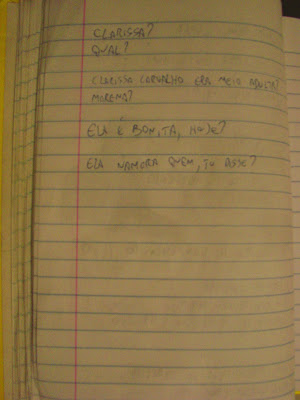 CLARISSA?
QUAL?
CLARISSA CARVALHO ERA MEIO
MORENA?
ELA É BONITA, HOJE?
ELA NAMORA QUEM, TU